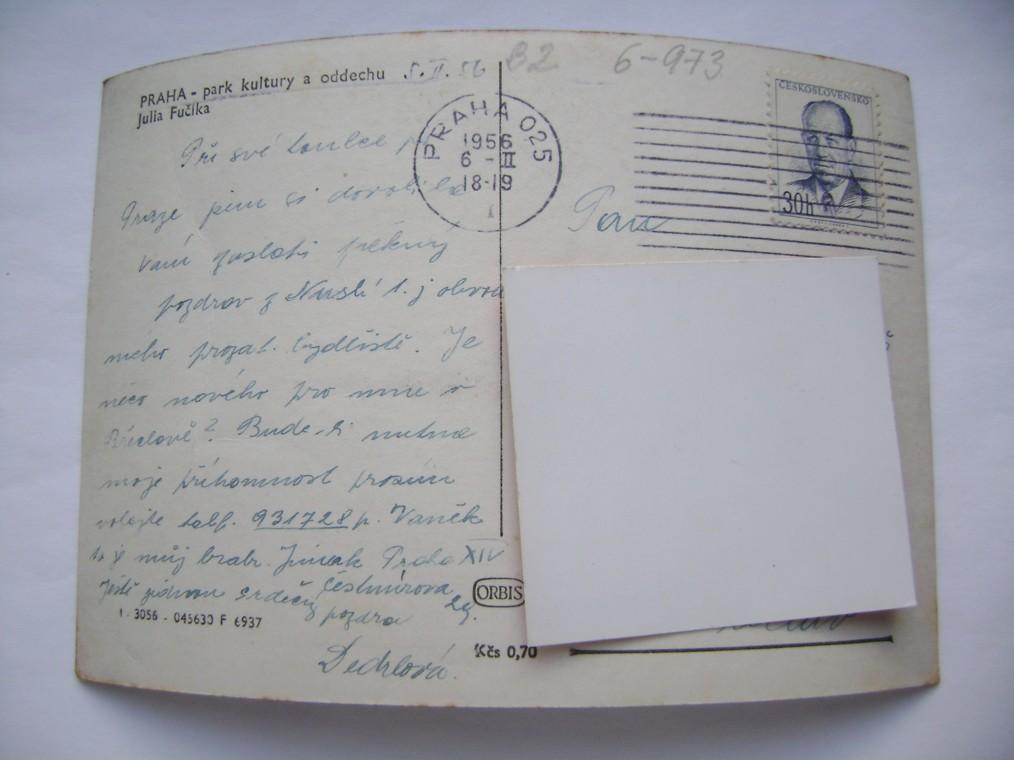 PRAHA - park kultury a oddechu 5. II. 56
Julia Fučíka
B2 6-973
PRAHA 025
1956
6 - II
18-19
1
ČESKOSLOVENSKO
30h
Pan
Při své toulce
Praze jsem si dovolila
Vám zaslati pěkný
pozdrav z Nuslí t. j obvod
mého prozat. bydliště. Je
něco nového pro mne v
Břeclavě? Bude-li nutná
moje přítomnost prosím
volejte telf. 931728 p. Vaněk
to je můj bratr. Jinak Praha XIV
Čestmírova
Ještě jednou srdečný pozdrav
ORBIS
1 - 3056 - 045630 F 6937
Kčs 0,70